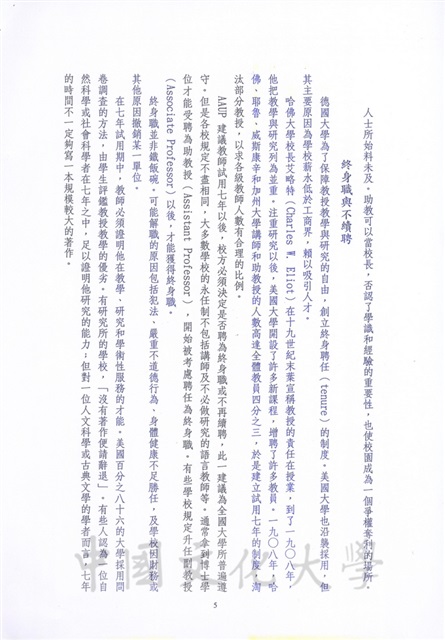 人士所始料未及。助教可以當校長，否認了學識和經驗的重要性，也使校園成為一個爭權奪利的場所。
終身職與不續聘
德國大學為了保障教授教學與研究的自由，創立終身聘任（tenure）的制度。美國大學也沿襲採用，但
其主要原因為學校薪本低於工商界，賴以吸引人才。
哈佛大學校長艾略特（Charles W. Eliot）在十九世紀末葉宣稱教授的責任在授業，到了一九〇八年，
他把教學與研究列為並重。注重研究以後，美國大學開設了許多新課程，增聘了許多教員。一九〇八年，哈
佛、耶魯、威斯康辛和加州大學講師和助教授的人數高達全體教員四分之三，於是建立試用七年的制度，淘
汰部分教授，以求各級教師人數有合理的比例。
AAUP 建議教師試用七年以後，校方必須決定是否聘為終身職或不再續聘，此一建議為全國大學所普遍遵
守。但是各校規定不盡相同，大多數學校的永任制不包括講師及不必做研究的語言教師等。通常拿到博士學
位才能受聘為助教授（Assistant Professor），開始被考慮聘任為終身職。有些學校規定升任副教授
（Associate Professor）以後，才能獲得終身職。
終身職並非鐵飯碗。可能解職的原因包括犯法、嚴重不道德行為、身體健康不足勝任，及學校因財務或
其他原因撤銷某一單位。
在七年試用期中，教師必須證明他在教學、研究和學術性服務的才能。美國百分之八十六的大學採用問
卷調查的方法，由學生評鑑教授教學的優劣。有研究所的學校，「沒有著作便請辭退」。有些人認為一位自
然科學或社會科學者在七年之中，足以證明他研究的能力；但對一位人文科學或古典文學的學者而言，七年
的時間不一定夠寫一本規模較大的著作。
5
中國文化大學